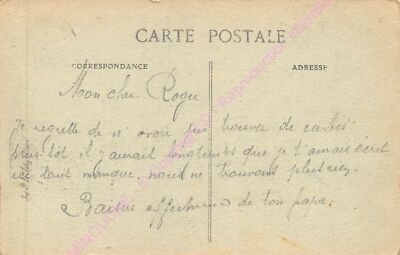 CARTE POSTALE
CORRESPONDANCE
ADRESSE
Mon cher Roger
Je regrette de n'avoir pu trouver de cartes
plus tôt il y aurait longtemps que je t'aurais écrit
ici tout manque, nous ne trouvons plus rien
Baisers affectueux de ton papa.
MINOUCHE Reproduction interdite